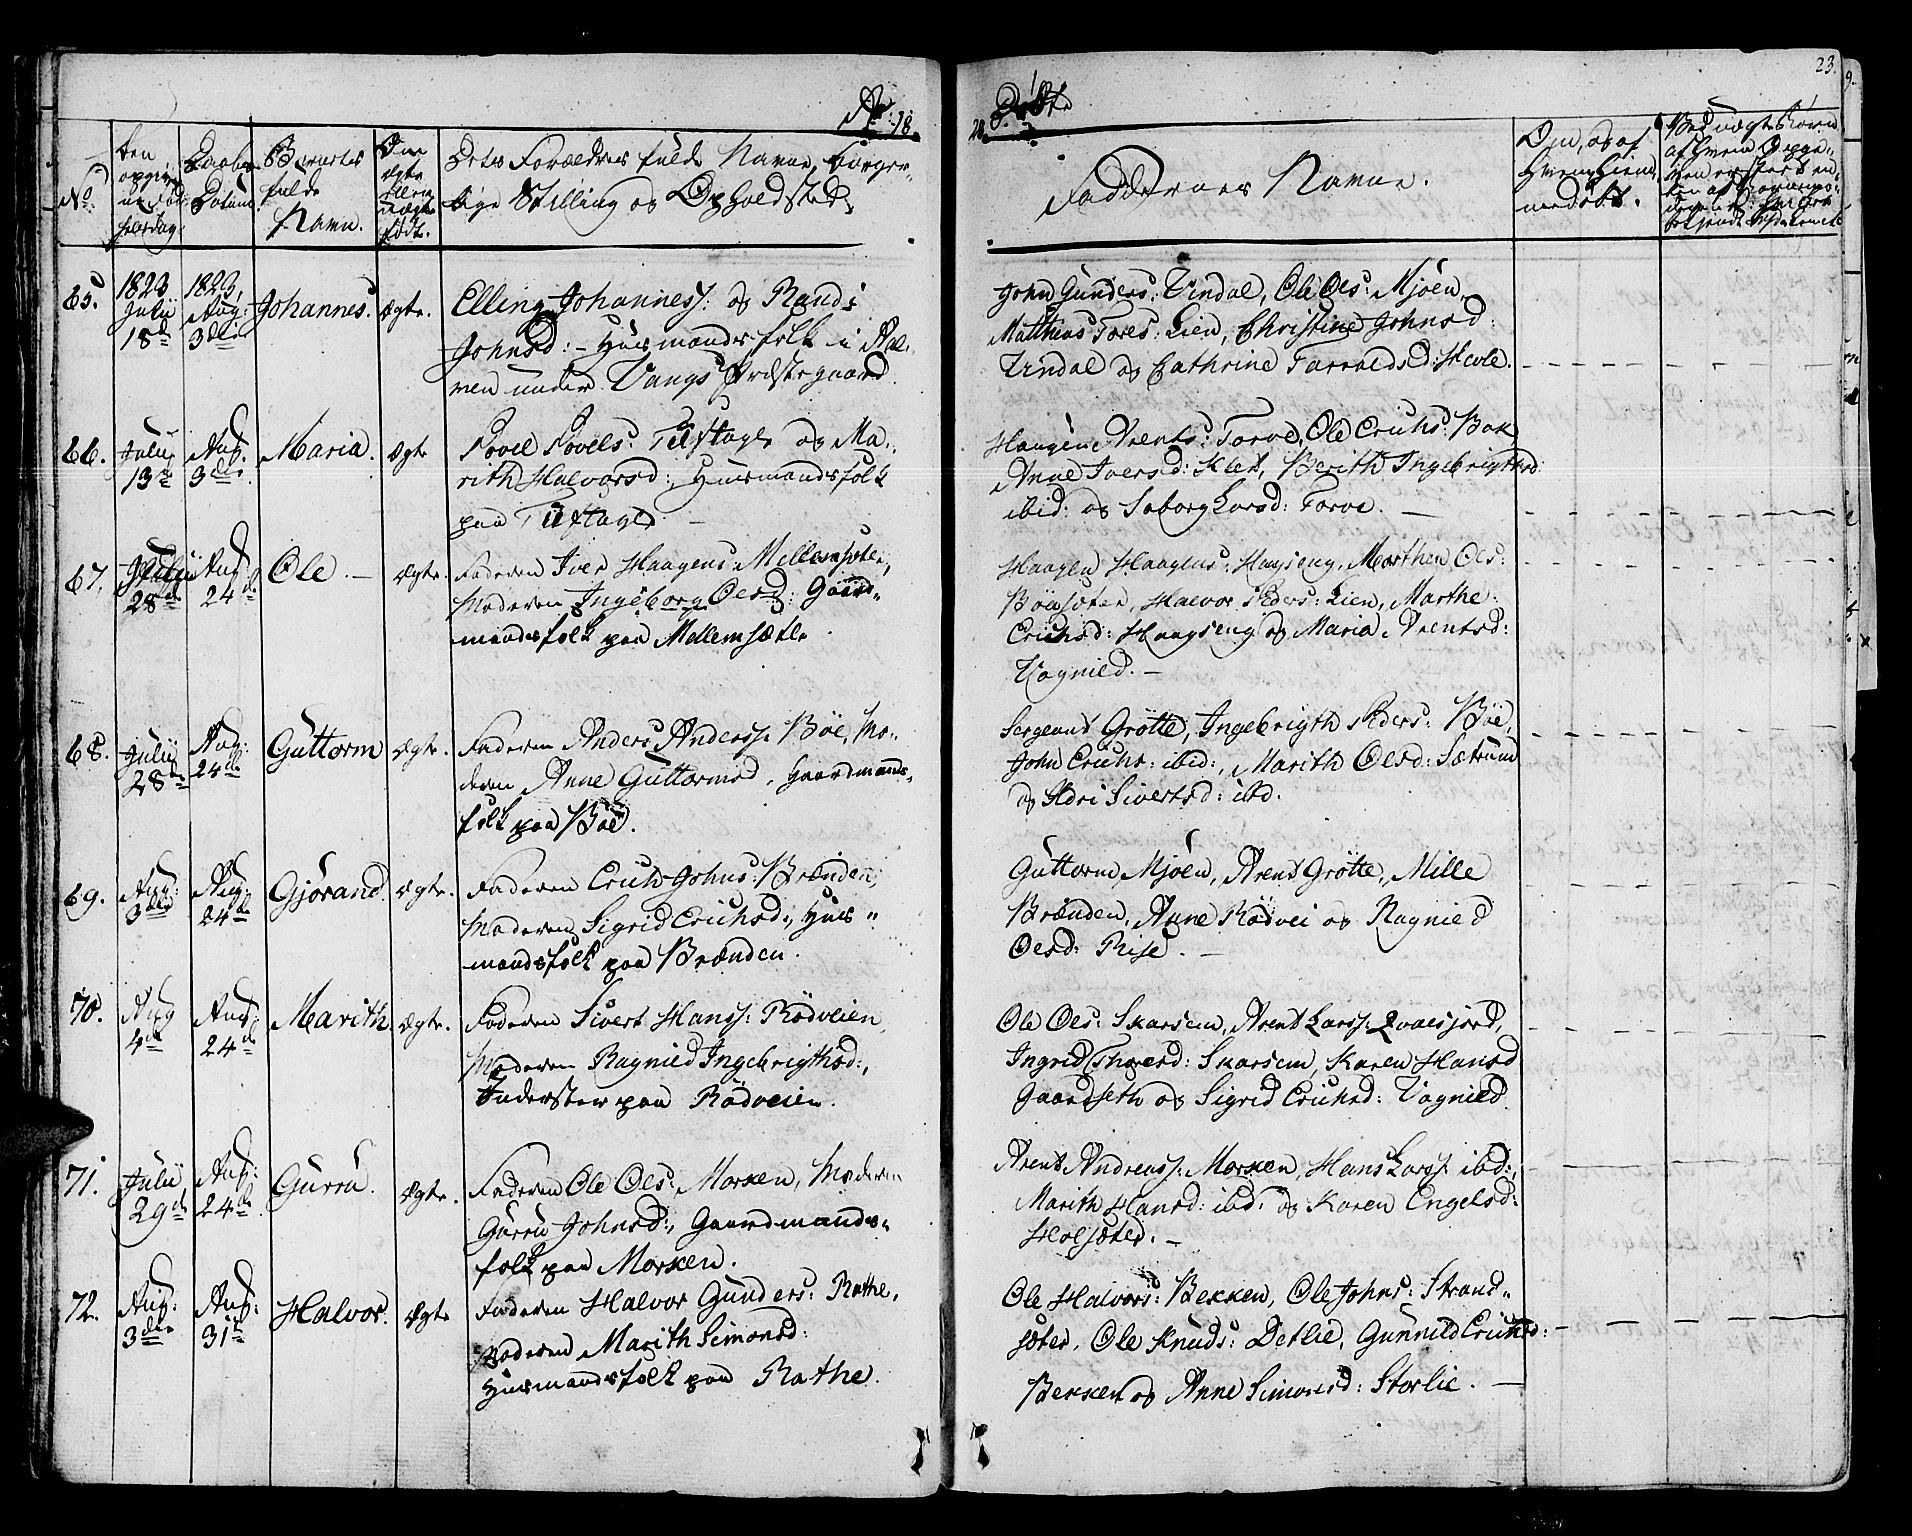 23.
No.
Barnets
fulde
Navn.
Dets Forældres fulde Navne, borger-
lige Stilling og Opholdsted.
Faddernes Navne.
65. 1823 Julii 18de 1823, Aug: 3die Johannes. Ægte. Elling Johanness: og Randi
Johnsd: - Huusmandsfolk i
under Vangs Præstegaard
John Gunders: Vindal, Ole Ols: Mjöen,
Matthias Tores: Lien, Christine Johnsd:
Vindal og Cathrine Haralds: Hevle.
66. Julii 13de Aug. 3die Maria. Ægte Povel Povels: Tüftage og Ma-
rith Halvorsd: Huusmandsfolk
paa Tüftage. -
Haagen Arents: Torve, Ole Erichs: Bak
Anne Iversd: Klet, Berith Ingebrigthsd:
ibid: og Larsd: Torve. -
67. Julii 28de Aug 24de Ole. - Ægte. Faderen Iver Haagens: Mellemsæter,
Moderen Ingeborg Olsd: Gaard-
mandsfolk paa Mellemsætle.
Haagen Haagens: Haugseng, Morthen Ols:
Böesæter, Halvor Peders: Lien, Marthe
Erichsd: Haugseng og Maria Arentsd:
Vognild. -
68. Julii 28de Aug: 24de Guttorm Ægte. Faderen Anders Anderss: Böe, Mo-
deren Anne Guttormsd, Gaardmands-
folk paa Böe.
Sergeant Grötte, Ingebrigth Peders: Böe,
John Erichs: ibid:, Marith Olsd: Sætrum
og Siversd: ibd.
69. Aug: 3die Aug: 24de Gjörand. Ægte. Faderen Erich Johns: Brænden,
Moderen Sigrid Erichsd:, Huus-
mandsfolk paa Brænden.
Guttorm Mjöen, Arent Grötte, Mille
Brænden, Anne Rödvei og Ragnild
Olsd: Rise. -
70. Aug 4de Aug 24de Marith Ægte. Faderen Sivert Hanss: Rödveien,
Moderen Ragnild Ingebrigthsd:,
Inderster paa Rödveien.
Ole Ols: Skarsem, Arent Larss:
Ingrid Thoresd: Skarsem, Karen Hansd
Gaardseth og Sigrid Erichsd: Vognild.
71. Julii 29de Aug: 24de Gurru. Ægte. Faderen Ole Ols: Morken, Moderen
Gurru Johnsd:, Gaardmands-
folk paa Morken.
Arent Andreass: Morken, Hans Larss: ibd:,
Marith Hansd: ibd. og Karen Engelsd:
Holsæter. -
72. Aug: 3die Aug: 31te Halvor. Ægte Faderen Halvor Gunders: Rathe,
Moderen Marith Simonsd:
Huusmandsfolk paa Rathe.
Ole Halvors: Bekken, Ole Johns: Strand-
sæter, Ole Knuds: Detlie, Gunnild Erichsd:
Bekken og Anne Simonsd: Storlie. -